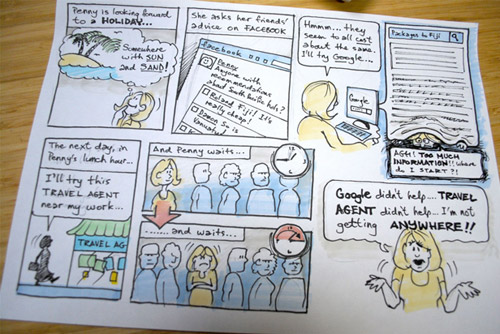 Penny is looking forward
to a HOLIDAY...
Somewhere
with SUN
and SAND!
She asks her friends'
advice on FACEBOOK
facebook
Penny
Anyone with
recommendations
about South Pacific hols?
Roland Fiji! It's
really cheap!
is
Vanuatu
Hmmm... they
seem to all cost
about the same.
I'll try Google...
Google
Packages to Fiji
AGH! TOO MUCH
INFORMATION!! Where
do I START?!
The next day, in
Penny's lunch hour...
I'll try this
TRAVEL AGENT
near my work...
TRAVEL AG
And Penny waits...
......and waits......
Google didn't help... TRAVEL
AGENT didn't help... I'm not
getting ANYWHERE!!